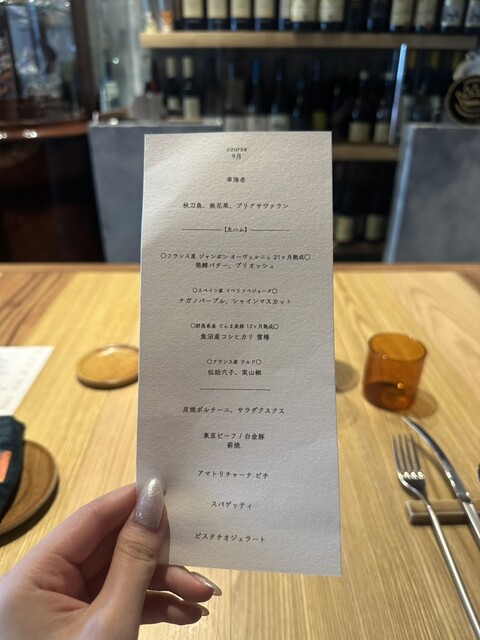 course
9月
車海老
秋刀魚、無花果、ブリアサヴァラン
【生ハム】
〇フランス産 ジャンボン オーヴェルニュ 21ヶ月熟成〇
発酵バター、ブリオッシュ
〇スペイン産 イベリコベジョータ〇
ナガノパープル、シャインマスカット
〇群馬県産 ぐんま麦豚 12ヶ月熟成〇
魚沼産コシヒカリ 雪椿
〇フランス産 ラルド〇
伝助穴子、実山椒
炭焼ポルチーニ、サラダクスクス
東京ビーフ / 白金豚
薪焼
アマトリチャーナ ピチ
スパゲッティ
ピスタチオジェラート